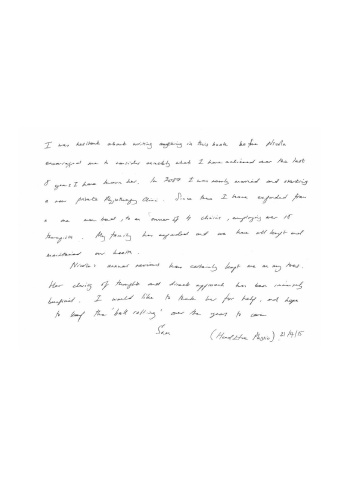 I was hesitant about writing anything in this book before Nicola
encouraged me to consider exactly what I have achieved over the last
15 years I have known her. In 2000 I was newly married and starting
a new private Physiotherapy Clinic. Since then I have expanded from
a one man band, to an owner of 4 clinics, employing over 15
therapists. My family has expanded and we have all kept and
maintained our health.
Nicola's annual reviews have certainly kept me on my toes.
Her clarity of thought and direct approach has been
I would like to thank her for help, and hope
to keep the 'ball rolling' over the years to come
(Physio) 21/4/15